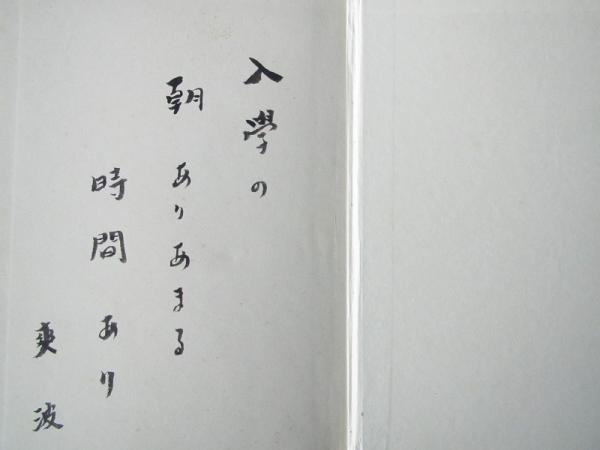 入學の
朝ありあまる
時間あり
爽波